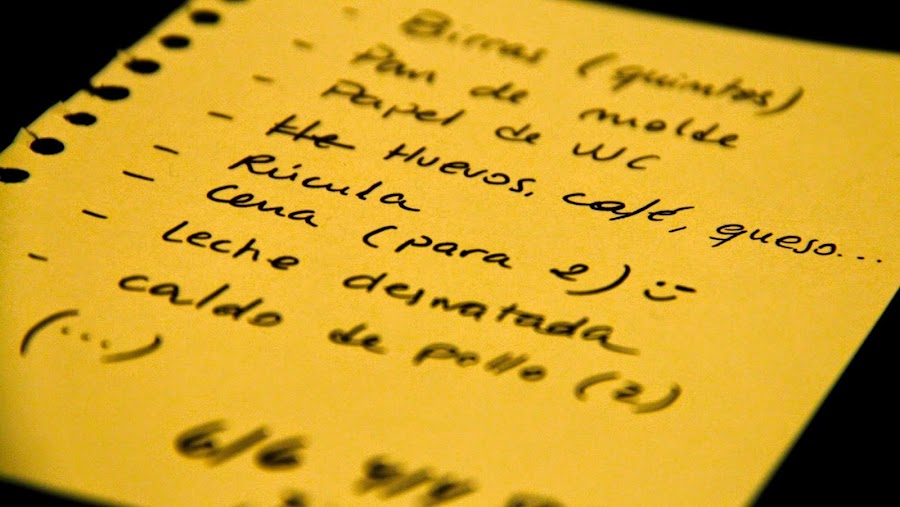 - Birras (quintos)
- Pan de molde
- Papel de WC
- Huevos, café, queso...
- Rúcula
- Cena (para 2) :-)
- Leche desnatada
- caldo de pollo (2)
(...)
6//6